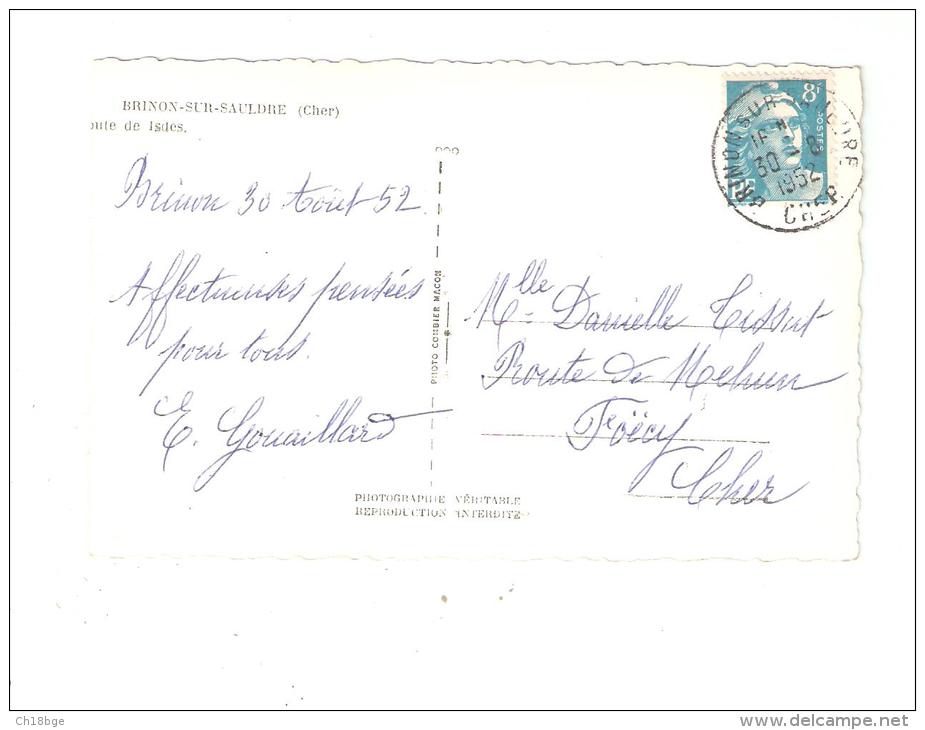 BRINON-SUR-SAULDRE (Cher)
oute de Isdes.
Brinon 30 Août 52.
Affectueuses pensées
pour tous.
E. Gouaillard
PHOTO COMBIER MACON
PHOTOGRAPHIE VÉRITABLE
REPRODUCTION INTERDITE
8F
POSTES
BRINON SUR SAULDRE
16 H
30 - 8
1952
CHER
Mlle Danielle Tissut
Route de Mehun
Foëcy
Cher
Ch18bge
www.delcampe.net